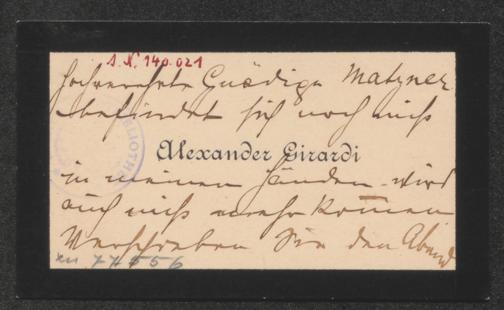 I. N. 140.021
Hochverehrte Gnädige Matzner
befindet sich noch nicht
Alexander Girardi
in meinen Händen wird
auch nicht mehr kommen
Verschieben Sie den Abend
77556